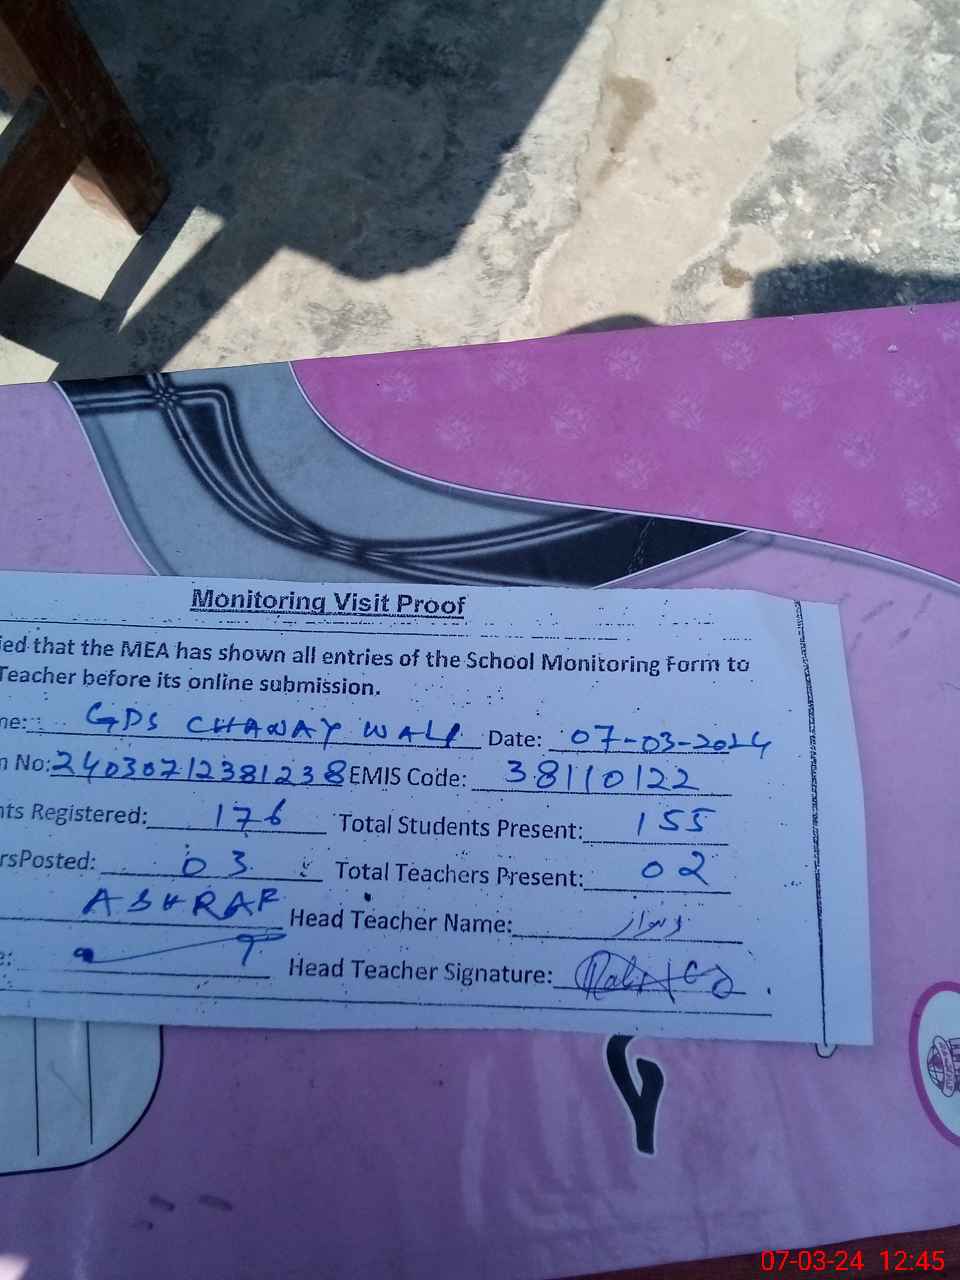 Monitoring Visit Proof
ied that the MEA has shown all entries of the School Monitoring Form to
Teacher before its online submission.
ne: GDS CHAWAY WALI Date: 07-03-2024
n No: 24030712381238 EMIS Code: 38110122
nts Registered: 176 Total Students Present: 155
rsPosted: 03 Total Teachers Present: 02
ASHRAF Head Teacher Name:
e: Head Teacher Signature:
07-03-24 12:45